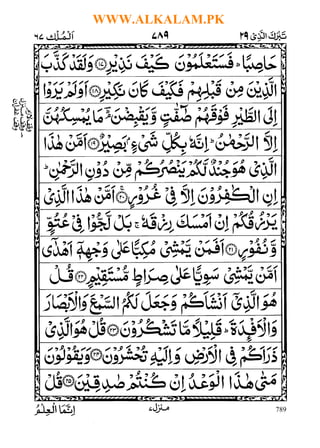 WWW.ALKALAM.PK
تَبٰرَكَ الَّذِىْ ٢٩
٧٨٩
اَلْمُلْك ٦٧
حَاصِبًا ؕ فَسَتَعْلَمُوْنَ كَيْفَ نَذِيْرِ ﴿١٧﴾ وَلَقَدْ كَذَّبَ
الَّذِيْنَ مِنْ قَبْلِهِمْ فَكَيْفَ كَانَ نَكِيْرِ ﴿١٨﴾ اَوَلَمْ يَرَوْا
اِلَى الطَّيْرِ فَوْقَهُمْ صٰٓفّٰتٍ وَّيَقْبِضْنَ ؔۘ مَا يُمْسِكُهُنَّ
اِلَّا الرَّحْمٰنُ ؕ اِنَّهٗ بِكُلِّ شَىْءٍۭ بَصِيْرٌ ﴿١٩﴾ اَمَّنْ هٰذَا
الَّذِىْ هُوَ جُنْدٌ لَّكُمْ يَنْصُرُكُمْ مِّنْ دُوْنِ الرَّحْمٰنِ ؕ
اِنِ الْكٰفِرُوْنَ اِلَّا فِىْ غُرُوْرٍ ﴿٢٠﴾ اَمَّنْ هٰذَا الَّذِىْ
يَرْزُقُكُمْ اِنْ اَمْسَكَ رِزْقَهٗ ۚ بَلْ لَّجُّوْا فِىْ عُتُوٍّ
وَّنُفُوْرٍ ﴿٢١﴾ اَفَمَنْ يَّمْشِىْ مُكِبًّا عَلٰى وَجْهِهٖٓ اَهْدٰٓى
اَمَّنْ يَّمْشِىْ سَوِيًّا عَلٰى صِرَاطٍ مُّسْتَقِيْمٍ ﴿٢٢﴾ قُلْ
هُوَ الَّذِىْٓ اَنْشَاَكُمْ وَجَعَلَ لَكُمُ السَّمْعَ وَالْاَبْصَارَ
وَالْاَفْـِٕدَةَ ؕ قَلِيْلًا مَّا تَشْكُرُوْنَ ﴿٢٣﴾ قُلْ هُوَ الَّذِىْ
ذَرَاَكُمْ فِى الْاَرْضِ وَاِلَيْهِ تُحْشَرُوْنَ ﴿٢٤﴾ وَيَقُوْلُوْنَ
مَتٰى هٰذَا الْوَعْدُ اِنْ كُنْتُمْ صٰدِقِيْنَ ﴿٢٥﴾ قُلْ
اِنَّمَا الْعِلْمُ
منزل ٧
789